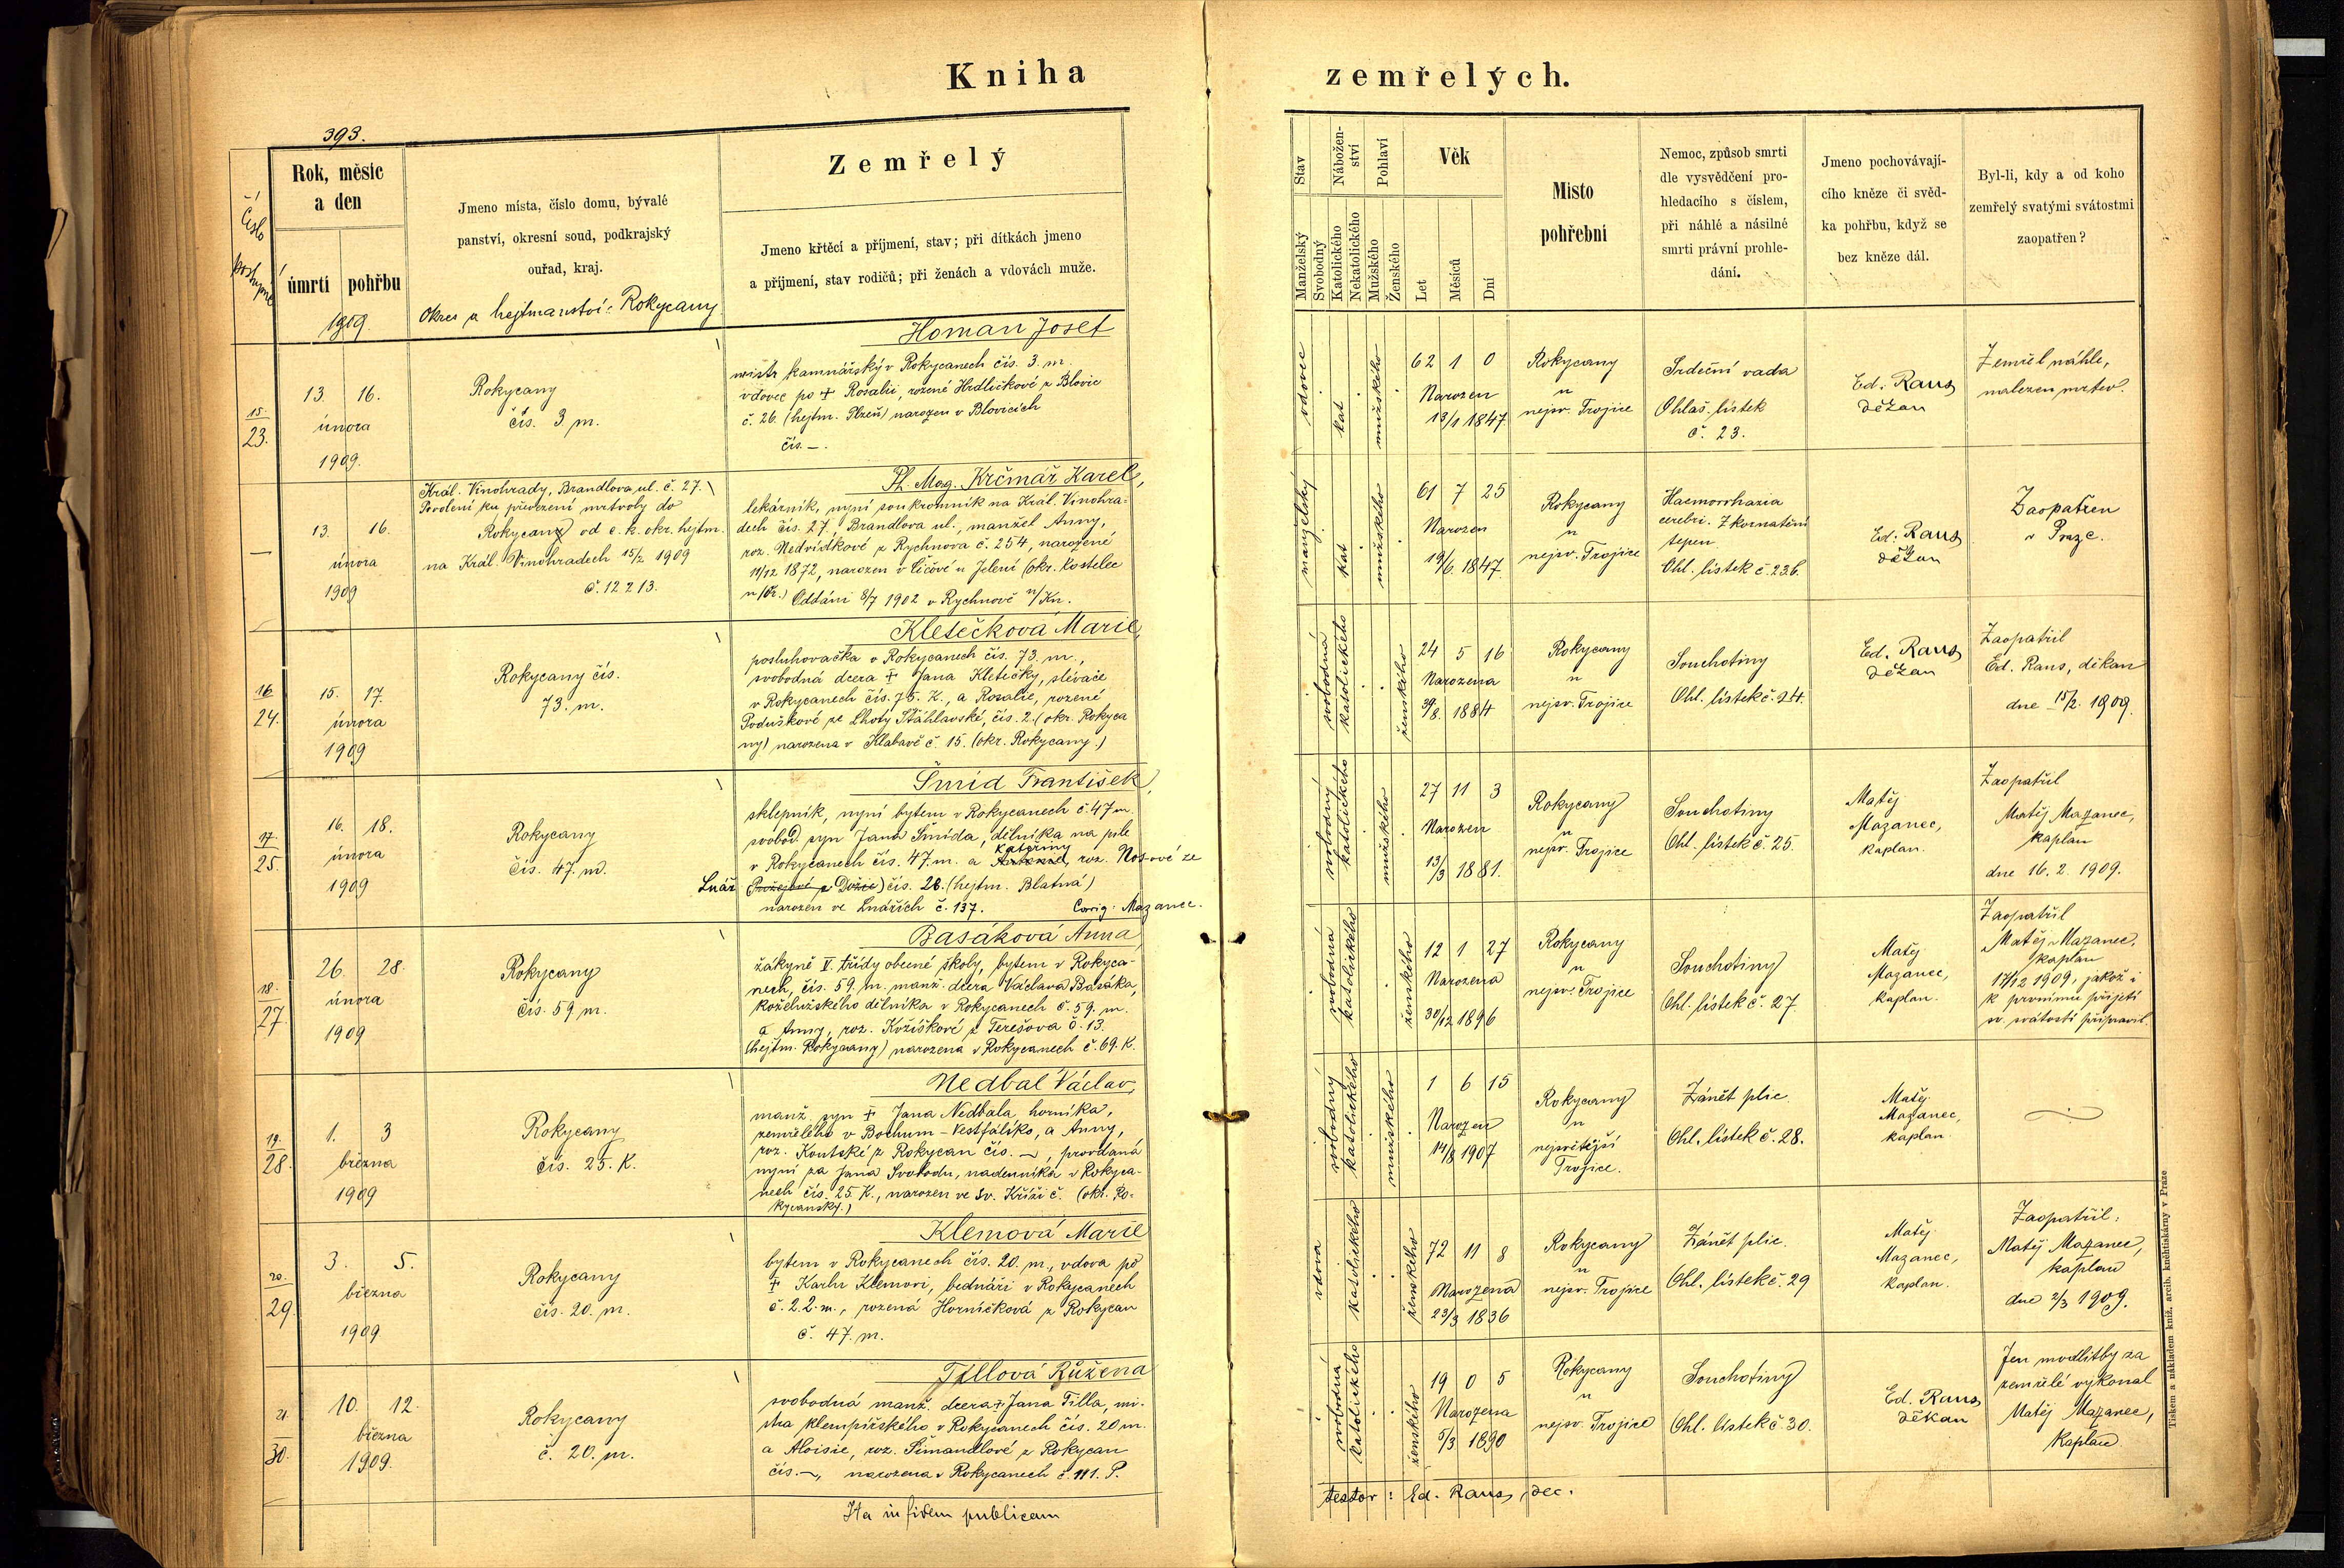 Kniha
zemřelých.
393.
Číslo
postupné
Rok, měsíc
a den
úmrtí
pohřbu
1909.
Jmeno místa, číslo domu, bývalé
panství, okresní soud, podkrajský
ouřad, kraj.
Okres a hejtmanství: Rokycany
Zemřelý
Jmeno křtěcí a příjmení, stav; při dítkách jmeno
a příjmení, stav rodičů; při ženách a vdovách muže.
Stav
Manželský
Svobodný
Nábožen-
ství
Katolického
Nekatolického
Pohlaví
Mužského
Ženského
Věk
Let
Měsíců
Dní
Místo
pohřební
Nemoc, způsob smrti
dle vysvědčení pro-
hledacího s číslem,
při náhlé a násilné
smrti právní prohle-
dání.
Jmeno pochovávají-
cího kněze či svěd-
ka pohřbu, když se
bez kněze dál.
Byl-li, kdy a od koho
zemřelý svatými svátostmi
zaopatřen?
15.
23.
13. 16.
února
1909.
Rokycany
čís. 3 m.
Homan Josef
mistr kamnářský v Rokycanech čís. 3. m.
vdovec po † Rosalii, rozené Hrdličkové z Blovic
č. 26. (hejtm. Plzeň) narozen v Blovicích
čís. –.
vdovec
kat
mužského
62 1 0
Narozen
13/1 1847.
Rokycany
u
nejsv. Trojice
Srdeční vada
Ohlaš. lístek
č. 23.
Ed. Raus
děkan
Zemřel náhle,
nalezen mrtev.
—
13. 16.
února
1909
Král. Vinohrady, Brandlova ul. č. 27.
Povolení ku převezení mrtvoly do
Rokycan od c. k. okr. hejtm.
na Král. Vinohradech 15/2 1909
č. 12213.
Ph. Mag. Krčmář Karel,
lekárník, nyní soukromník na Král. Vinohra-
dech čís. 27, Brandlova ul., manžel Anny,
roz. Nedvídkové z Rychnova č. 254, narozené
11/12 1872, narozen v Ličově u Jelení (okr. Kostelec
n/Or.) Oddáni 8/7 1902 v Rychnově n/Kn.
manželský
kat
mužského
61 7 25
Narozen
19/6. 1847.
Rokycany
u
nejsv. Trojice
Haemorrhagia
cerebri. Zkornatění
tepen.
Ohl. lístek č. 236.
Ed. Raus
děkan
Zaopatřen
v Praze.
16.
24.
15. 17.
února
1909
Rokycany čís.
73. m.
Kletečková Marie,
posluhovačka v Rokycanech čís. 73. m.,
svobodná dcera † Jana Kletečky, slévače
v Rokycanech čís. 75. K., a Rosalie, rozené
Poduškové ze Lhoty Šťáhlavské, čís. 2. (okr. Rokyca
ny) narozena v Klabavě č. 15. (okr. Rokycany.)
svobodná
katolického
ženského
24 5 16
Narozena
30/8. 1884
Rokycany
u
nejsv. Trojice
Souchotiny
Ohl. lístek č. 24.
Ed. Raus
děkan
Zaopatřil
Ed. Raus, děkan
dne 15/2. 1909.
17.
25.
16. 18.
února
1909
Rokycany
čís. 47. m.
Šmíd František,
sklepník, nyní bytem v Rokycanech č. 47 m.
svobod. syn Jana Šmída, dělníka na pile
Kateřiny
v Rokycanech čís. 47. m. a Antonie, roz. Nosové ze
Lnář čís. 28. (hejtm. Blatná)
narozen ve Lnářích č. 137. Corrig. Mazanec.
svobodný
katolického
mužského
27 11 3
Narozen
13/3 1881.
Rokycany
u
nejsv. Trojice
Souchotiny
Ohl. lístek č. 25.
Matěj
Mazanec,
kaplan.
Zaopatřil
Matěj Mazanec,
kaplan
dne 16. 2. 1909.
18.
27.
26. 28.
února
1909
Rokycany
čís. 59 m.
Basáková Anna,
žákyně V. třídy obecné školy, bytem v Rokyca-
nech, čís. 59. m. manž. dcera Václava Basáka,
koželužského dělníka v Rokycanech č. 59. m.
a Anny, roz. Kožíškové z Terešova č. 13.
(hejtm. Rokycany) narozena v Rokycanech č. 69. K.
svobodná
katolického
ženského
12 1 27
Narozena
30/12 1896
Rokycany
u
nejsv. Trojice
Souchotiny
Ohl. lístek č. 27.
Matěj
Mazanec,
kaplan.
Zaopatřil
Matěj Mazanec,
kaplan
17/12 1909, jakož i
k prvnímu přijetí
sv. svátostí připravil.
19.
28.
1. 3
března
1909
Rokycany
čís. 25. K.
Nedbal Václav,
manž. syn † Jana Nedbala, horníka,
zemřelého v Bochum – Vestfálsko, a Anny,
roz. Koutské z Rokycan čís. –, provdaná
nyní za Jana Svobodu, nadenníka v Rokyca-
nech čís. 25. K., narozen ve Sv. Kříži č. (okr. Ro-
kycanský.)
svobodný
katolického
mužského
1 6 15
Narozen
14/8 1907
Rokycany
u
nejsvětější
Trojice.
Zánět plic.
Ohl. lístek č. 28.
Matěj
Mazanec,
kaplan.
20.
29.
3. 5.
března
1909
Rokycany
čís. 20. m.
Klemová Marie
bytem v Rokycanech čís. 20. m., vdova po
† Karlu Klemovi, bednáři v Rokycanech
č. 22. m., rozená Horníčková z Rokycan
č. 47. m.
vdova
katolického
ženského
72 11 8
Narozena
23/3 1836
Rokycany
u
nejsv. Trojice
Zánět plic.
Ohl. lístek č. 29
Matěj
Mazanec,
kaplan.
Zaopatřil:
Matěj Mazanec,
kaplan
dne 2/3 1909.
21.
30.
10. 12.
března
1909.
Rokycany
č. 20. m.
Tillová Růžena
svobodná manž. dcera † Jana Tilla, mi-
stra klempířského v Rokycanech čís. 20 m.
a Aloisie, roz. Šimandlové z Rokycan
čís. –, narozena v Rokycanech č. 111. P.
svobodná
katolického
ženského
19 0 5
Narozena
5/3 1890
Rokycany
u
nejsv. Trojice
Souchotiny
Ohl. lístek č. 30.
Ed. Raus
děkan
Jen modlitby za
zemřelé vykonal
Matěj Mazanec,
kaplan
Ita in fidem publicam
testor: Ed. Raus, dec.
Tiskem a nákladem kníž. arcib. knihtiskárny v Praze